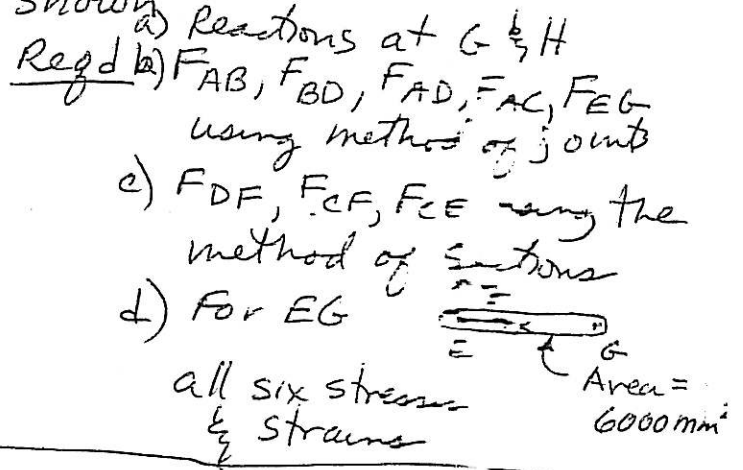 shown
a) Reactions at G & H
Reqd b) FAB, FBD, FAD, FAC, FEG
using method of joints
c) FDF, FCF, FCE using the
method of Sections
d) For EG
E G
Area =
6000 mm²
all six stresses
& strains